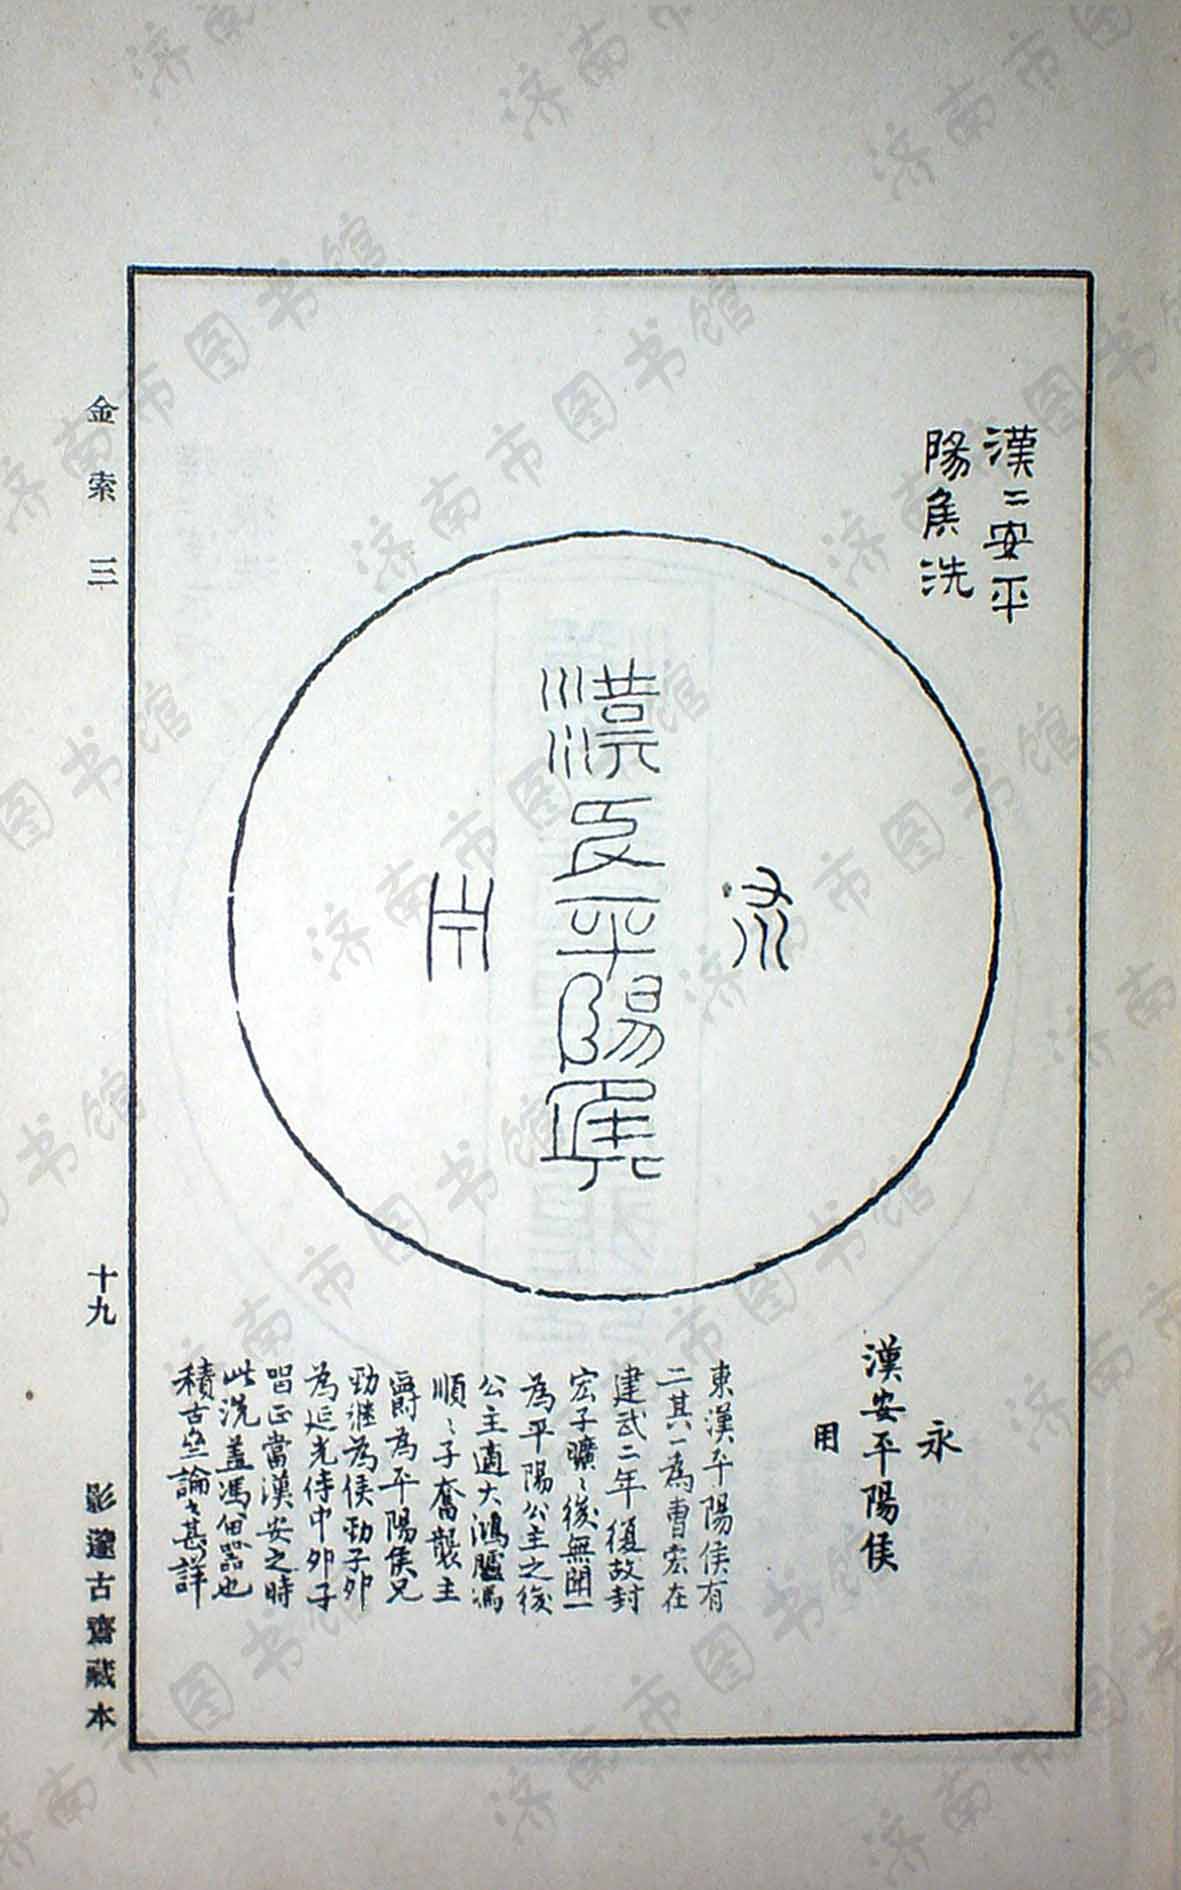 漢〻安平
陽矦洗
永
漢安平陽矦
用
永
漢安平陽侯
用
東漢平陽侯有
二其一為曹宏在
建武二年復故封
宏子曠〻後無聞一
為平陽公主之後
公主適大鴻臚馮
順〻子奮襲主
爵為平陽侯兄
勁繼為侯勁子卯
為延光侍中卯子
留正當漢安之時
此洗蓋馮留器也
積古齋論之甚詳
金索三
十九
影邃古齋藏本
济南市图书馆